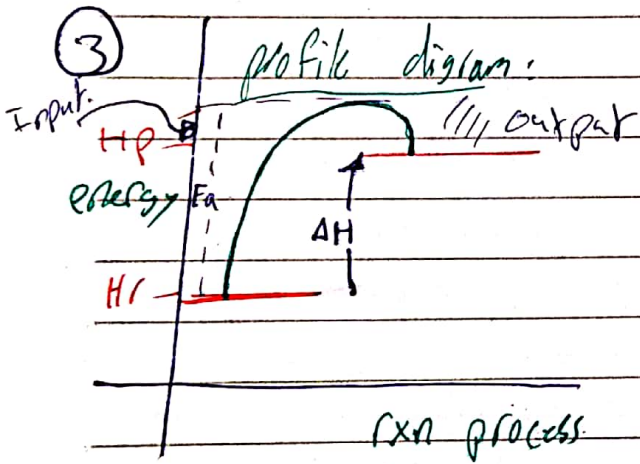 3
profile digram:
Input.
Hp
//// output
energy
Ea
ΔH
Hr
rxn process